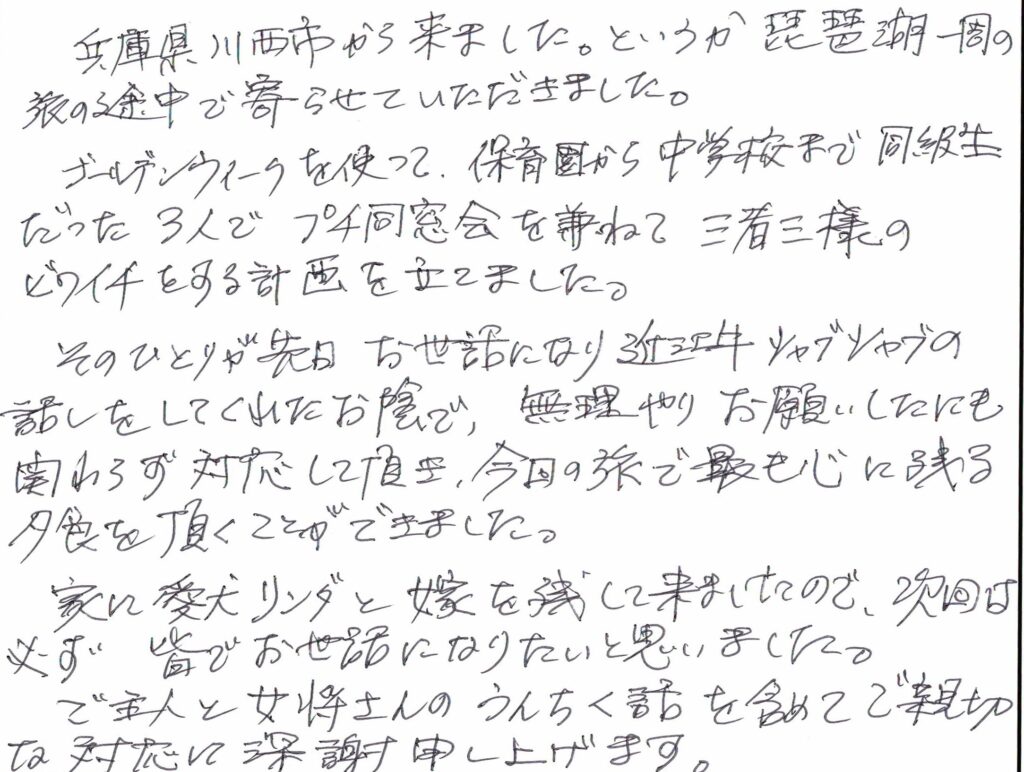 兵庫県川西市から来ました。というか琵琶湖一周の
旅の途中で寄らせていただきました。
ゴールデンウィークを使って、保育園から中学校まで同級生
だった3人でプチ同窓会を兼ねて三者三様の
ビワイチをする計画を立てました。
そのひとりが先日お世話になり近江牛シャブシャブの
話しをしてくれたお陰で、無理やりお願いしたにも
関わらず対応して頂き、今回の旅で最も心に残る
夕食を頂くことができました。
家に愛犬リンダと嫁を残して来ましたので、次回は
必ず皆でお世話になりたいと思いました。
ご主人と女将さんのうんちく話を含めてご親切
な対応に深謝申し上げます。